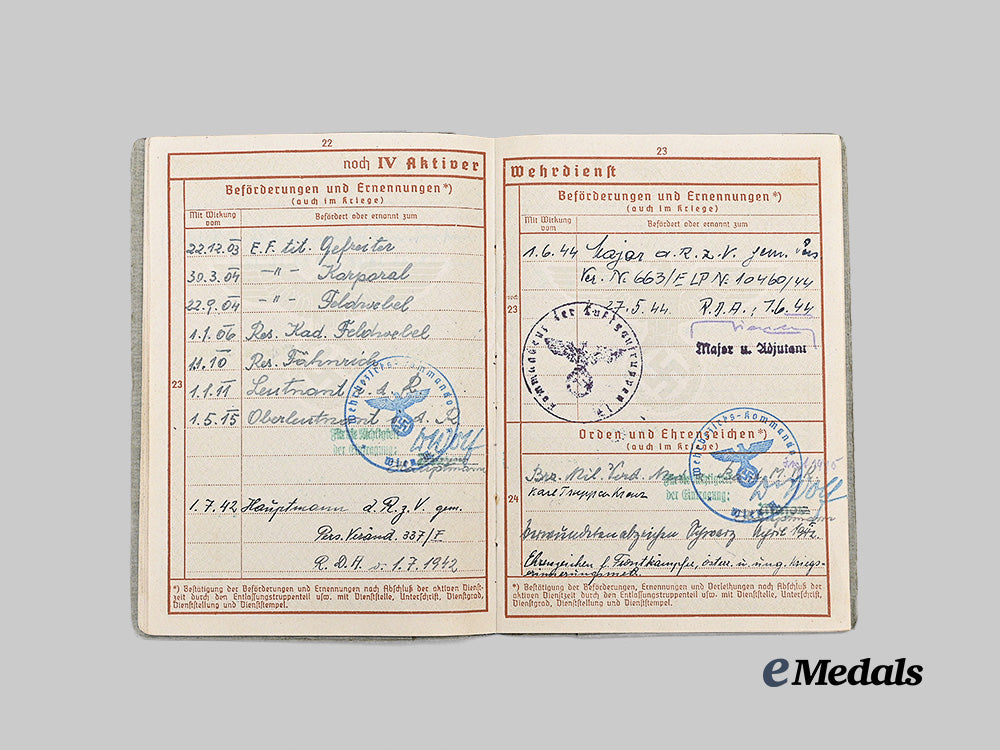 22
noch IV Aktiver
Beförderungen und Ernennungen*)
(auch im Kriege)
Mit Wirkung vom
Befördert oder ernannt zum
22.12.03 E.F. tit. Gefreiter
30.3.04 -"- Korporal
22.9.04 -"- Feldwebel
1.1.06 Res. Kad. Feldwebel
Res. Fähnrich
23
1.1.11 Leutnant d. R.
1.5.15 Oberleutnant d. R.
Wehrbezirks-Kommando
Wien
der Eintragung:
Hauptmann
1.7.42 Hauptmann d. R. z. V. gem.
Pers. Veränd. 337/F
R.D.A. v. 1.7.1942
*) Bestätigung der Beförderungen und Ernennungen nach Abschluß der aktiven Dienst-
zeit durch den Entlassungstruppenteil usw. mit Dienststelle, Unterschrift, Dienstgrad,
Dienststellung und Dienststempel.
23
Wehrdienst
Beförderungen und Ernennungen*)
(auch im Kriege)
Mit Wirkung vom
Befördert oder ernannt zum
1.6.44 Major d. R. z. V. gem. Pers
Ver. N. 663/F LP N. 10460/44
noch
23
27.5.44. R.D.A.: 1.6.44
Major u. Adjutant
Kommandeur der
Orden und Ehrenzeichen*)
(auch im Kriege)
Wehrbezirks-Kommando
Wien
Brz. Mil. Verd. Med.
Karl Truppenkreuz
der Eintragung:
24
Verwundetenabzeichen Schwarz April 1942.
Ehrenzeichen f. Frontkämpfer, österr. u. ung. Kriegs-
erinnerungsmed.
*) Bestätigung der Beförderungen, Ernennungen und Verleihungen nach Abschluß der
aktiven Dienstzeit durch den Entlassungstruppenteil usw. mit Dienststelle, Unterschrift,
Dienstgrad, Dienststellung und Dienststempel.
eMedals